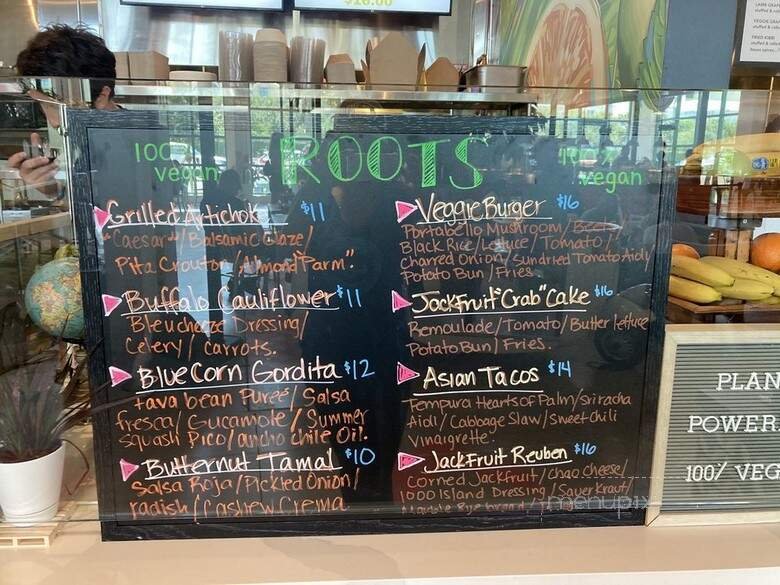 100%
vegan
ROOTS
100%
vegan
Grilled Artichoke $11
"Caesar"/Balsamic Glaze/
Pita Crouton/"Almond Parm".
Buffalo Cauliflower $11
Bleucheeze Dressing/
Celery/Carrots.
Blue Corn Gordita $12
fava bean Puree/Salsa
fresca/Gucamole/Summer
squash Pico/ancho chile Oil.
Butternut Tamal $10
Salsa Roja/Pickled Onion/
radish/Cashew Crema
Veggie Burger $16
Portabello Mushroom/Beets/
Black Rice/Lettuce/Tomato/
Charred Onion/Sundried Tomato Aioli/
Potato Bun/Fries
Jackfruit "Crab" Cake $16
Remoulade/Tomato/Butter lettuce
Potato Bun/Fries.
Asian Tacos $14
Tempura Hearts of Palm/Sriracha
Aioli/Cabbage Slaw/sweet chili
Vinaigrette.
Jackfruit Reuben $16
Corned Jackfruit/Chao cheese/
1000 Island Dressing/Sauer Kraut/
Marble Rye bread/Fries
PLAN
POWER
100% VEG
menupix